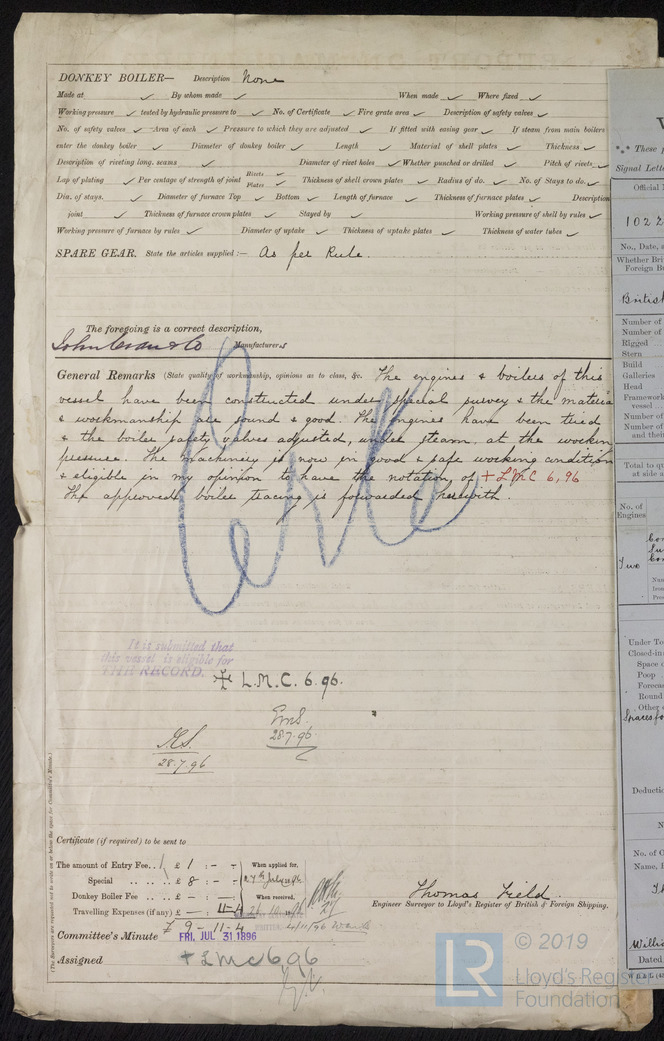 DONKEY BOILER— Description None
Made at ✓ By whom made ✓ When made ✓ Where fixed ✓
Working pressure ✓ tested by hydraulic pressure to ✓ No. of Certificate ✓ Fire grate area ✓ Description of safety valves ✓
No. of safety valves ✓ Area of each ✓ Pressure to which they are adjusted ✓ If fitted with easing gear ✓ If steam from main boilers
enter the donkey boiler ✓ Diameter of donkey boiler ✓ Length ✓ Material of shell plates ✓ Thickness ✓
Description of riveting long. seams ✓ Diameter of rivet holes ✓ Whether punched or drilled ✓ Pitch of rivets ✓
Lap of plating ✓ Per centage of strength of joint Rivets ✓ Plates ✓ Thickness of shell crown plates ✓ Radius of do. ✓ No. of Stays to do. ✓
Dia. of stays. ✓ Diameter of furnace Top ✓ Bottom ✓ Length of furnace ✓ Thickness of furnace plates ✓ Description
joint ✓ Thickness of furnace crown plates ✓ Stayed by ✓ Working pressure of shell by rules ✓
Working pressure of furnace by rules ✓ Diameter of uptake ✓ Thickness of uptake plates ✓ Thickness of water tubes ✓
SPARE GEAR. State the articles supplied:— As per Rule.
The foregoing is a correct description,
John Cran & Co Manufacturers
General Remarks (State quality of workmanship, opinions as to class, &c. The engines & boilers of this
vessel have been constructed under special survey & the materia
& workmanship are sound & good. The engines have been tried
& the boiler safety valves adjusted, under steam, at the workin
pressure. The machinery is now in good & safe working condition
& eligible in my opinion to have the notation of + LMC 6,96
The approved boiler tracing is forwarded herewith.
It is submitted that
this vessel is eligible for
THE RECORD. + L.M.C. 6.96.
28.7.96
28.7.96
Certificate (if required) to be sent to
The amount of Entry Fee.. £ 1 : - - When applied for,
Special £ 8 : - - 27th July 1896
Donkey Boiler Fee £ — : — : When received,
Travelling Expenses (if any) £ — : 11-4
£ 9 - 11 - 4
Thomas Field
Engineer Surveyor to Lloyd's Register of British & Foreign Shipping.
Committee's Minute FRI. JUL 31 1896
Assigned + LMC 6,96
(The Surveyors are requested not to write on or below the space for Committee's Minute.)
These p
Signal Lette
Official
1022
No., Date, a
Whether Bri
Foreign B
British
Number of
Number of
Rigged
Stern
Build
Galleries
Head
Framework
vessel
Number of
Number of
and thei
Total to qu
at side a
No. of
Engines
Two
Under To
Closed-in
Space
Poop
Foreca
Round
Other
Deducti
No. of O
Name,
Willi
Dated
© 2019
LR
Lloyd's Register
Foundation